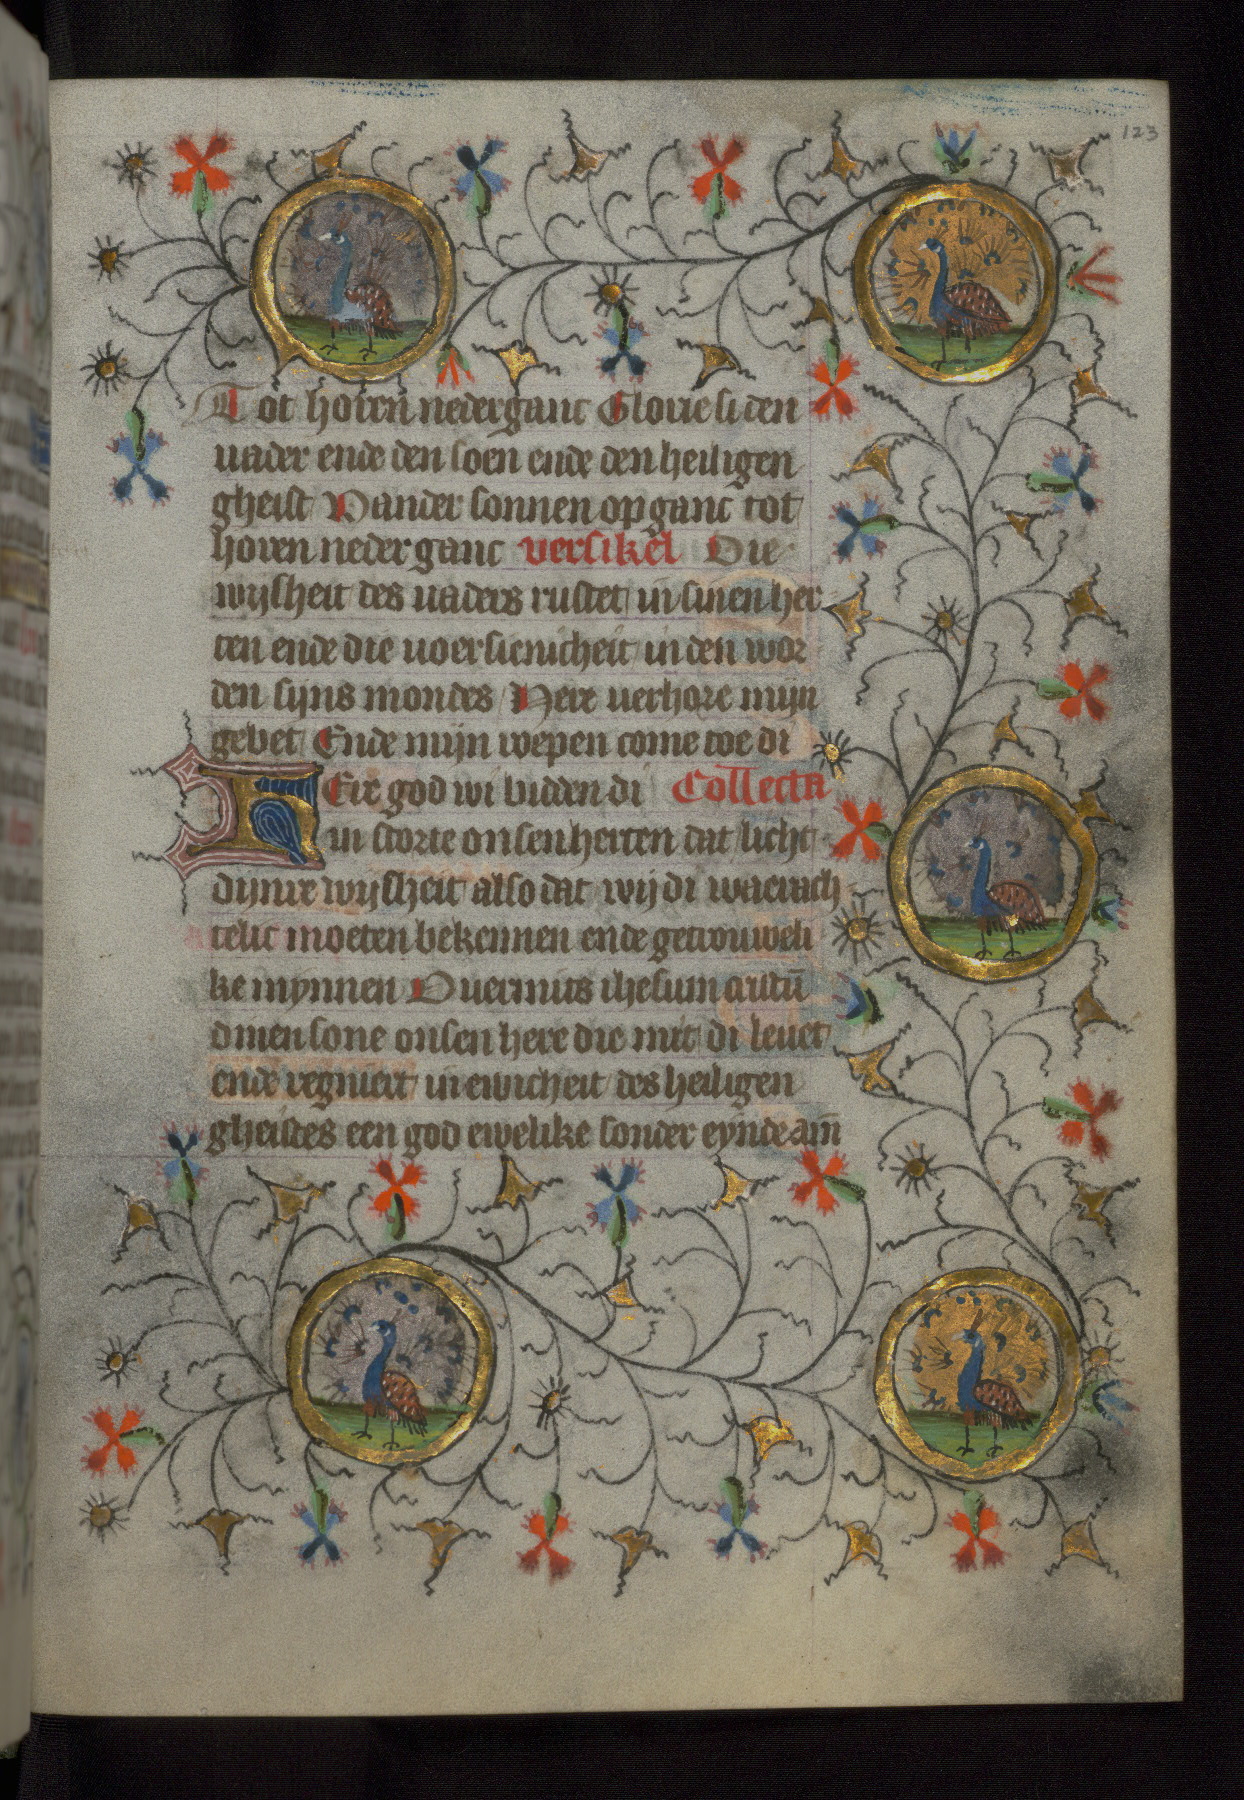 123
Tot horen nederganc Glorie si den
uader ende den soen ende den heiligen
gheist Vander sonnen opganc tot
horen nederganc versikel Die
wijsheit des uaders rustet in sinen her
ten ende die uoersienicheit in den wor
den sijns mondes Here verhore mijn
gebet Ende mijn wepen come toe di
Heir god wi bidden di Collecta
in storte onsen herten dat licht
dijnre wijsheit also dat wij di waerach
telic moeten bekennen ende getrouweli
ke mynnen Ouermits ihesum cristū
dinen sone onsen here die mit di leuet
ende regniert in ewicheit des heiligen
gheistes een god ewelike sonder eynde am̄